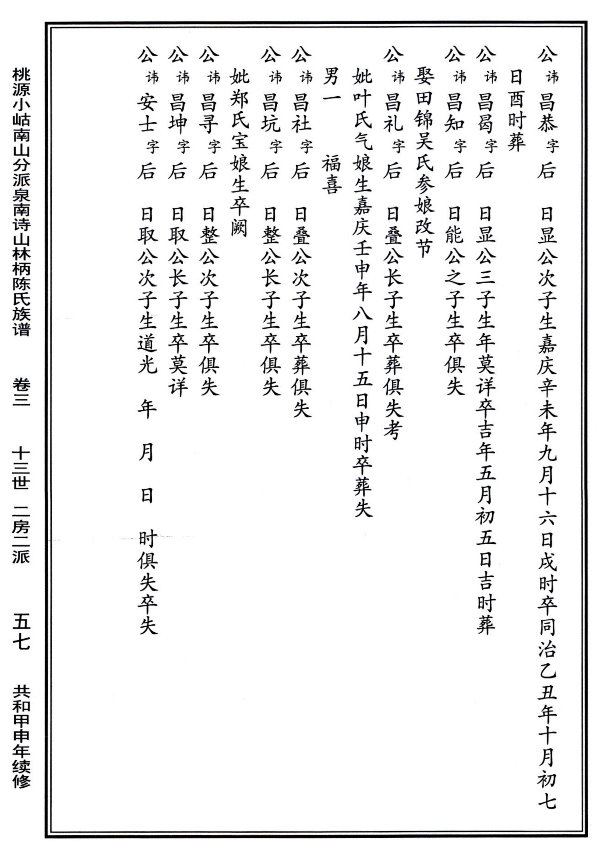 公讳昌恭字 后 日显公次子生嘉庆辛未年九月十六日戌时卒同治乙丑年十月初七
日酉时葬
公讳昌曷字 后 日显公三子生年莫详卒吉年五月初五日吉时葬
公讳昌知字 后 日能公之子生卒俱失
娶田锦吴氏参娘改节
公讳昌礼字 后 日叠公长子生卒葬俱失考
妣叶氏气娘生嘉庆壬申年八月十五日申时卒葬失
男一 福喜
公讳昌社字 后 日叠公次子生卒葬俱失
公讳昌坑字 后 日整公长子生卒俱失
妣郑氏宝娘生卒阙
公讳昌寻字 后 日整公次子生卒俱失
公讳昌坤字 后 日取公长子生卒莫详
公讳安士字 后 日取公次子生道光 年 月 日 时俱失卒失
桃源小岵南山分派泉南诗山林柄陈氏族谱 卷三 十三世 二房二派 五七 共和甲申年续修